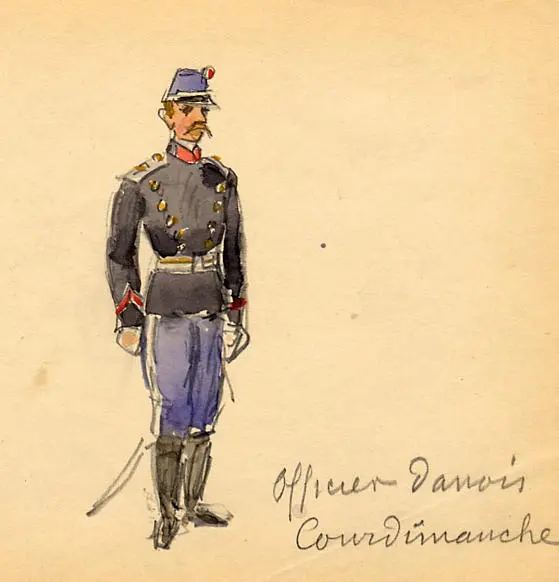 Officier Danois
Courdimanche